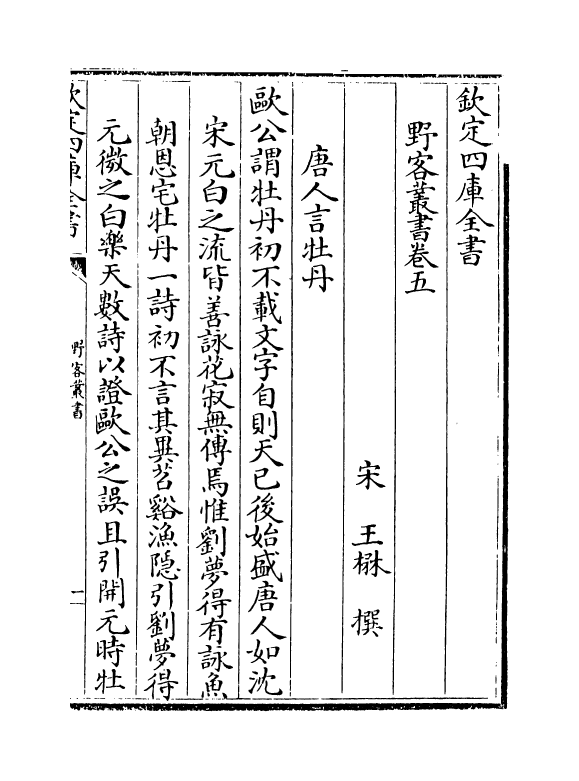 欽定四庫全書
野客叢書卷五
宋 王楙 撰
唐人言牡丹
歐公謂牡丹初不載文字自則天已後始盛唐人如沈
宋元白之流皆善詠花寂無傳焉惟劉夢得有詠魚
朝恩宅牡丹一詩初不言其異苕谿漁隱引劉夢得
元微之白樂天數詩以證歐公之誤且引開元時牡
欽定四庫全書
野客叢書